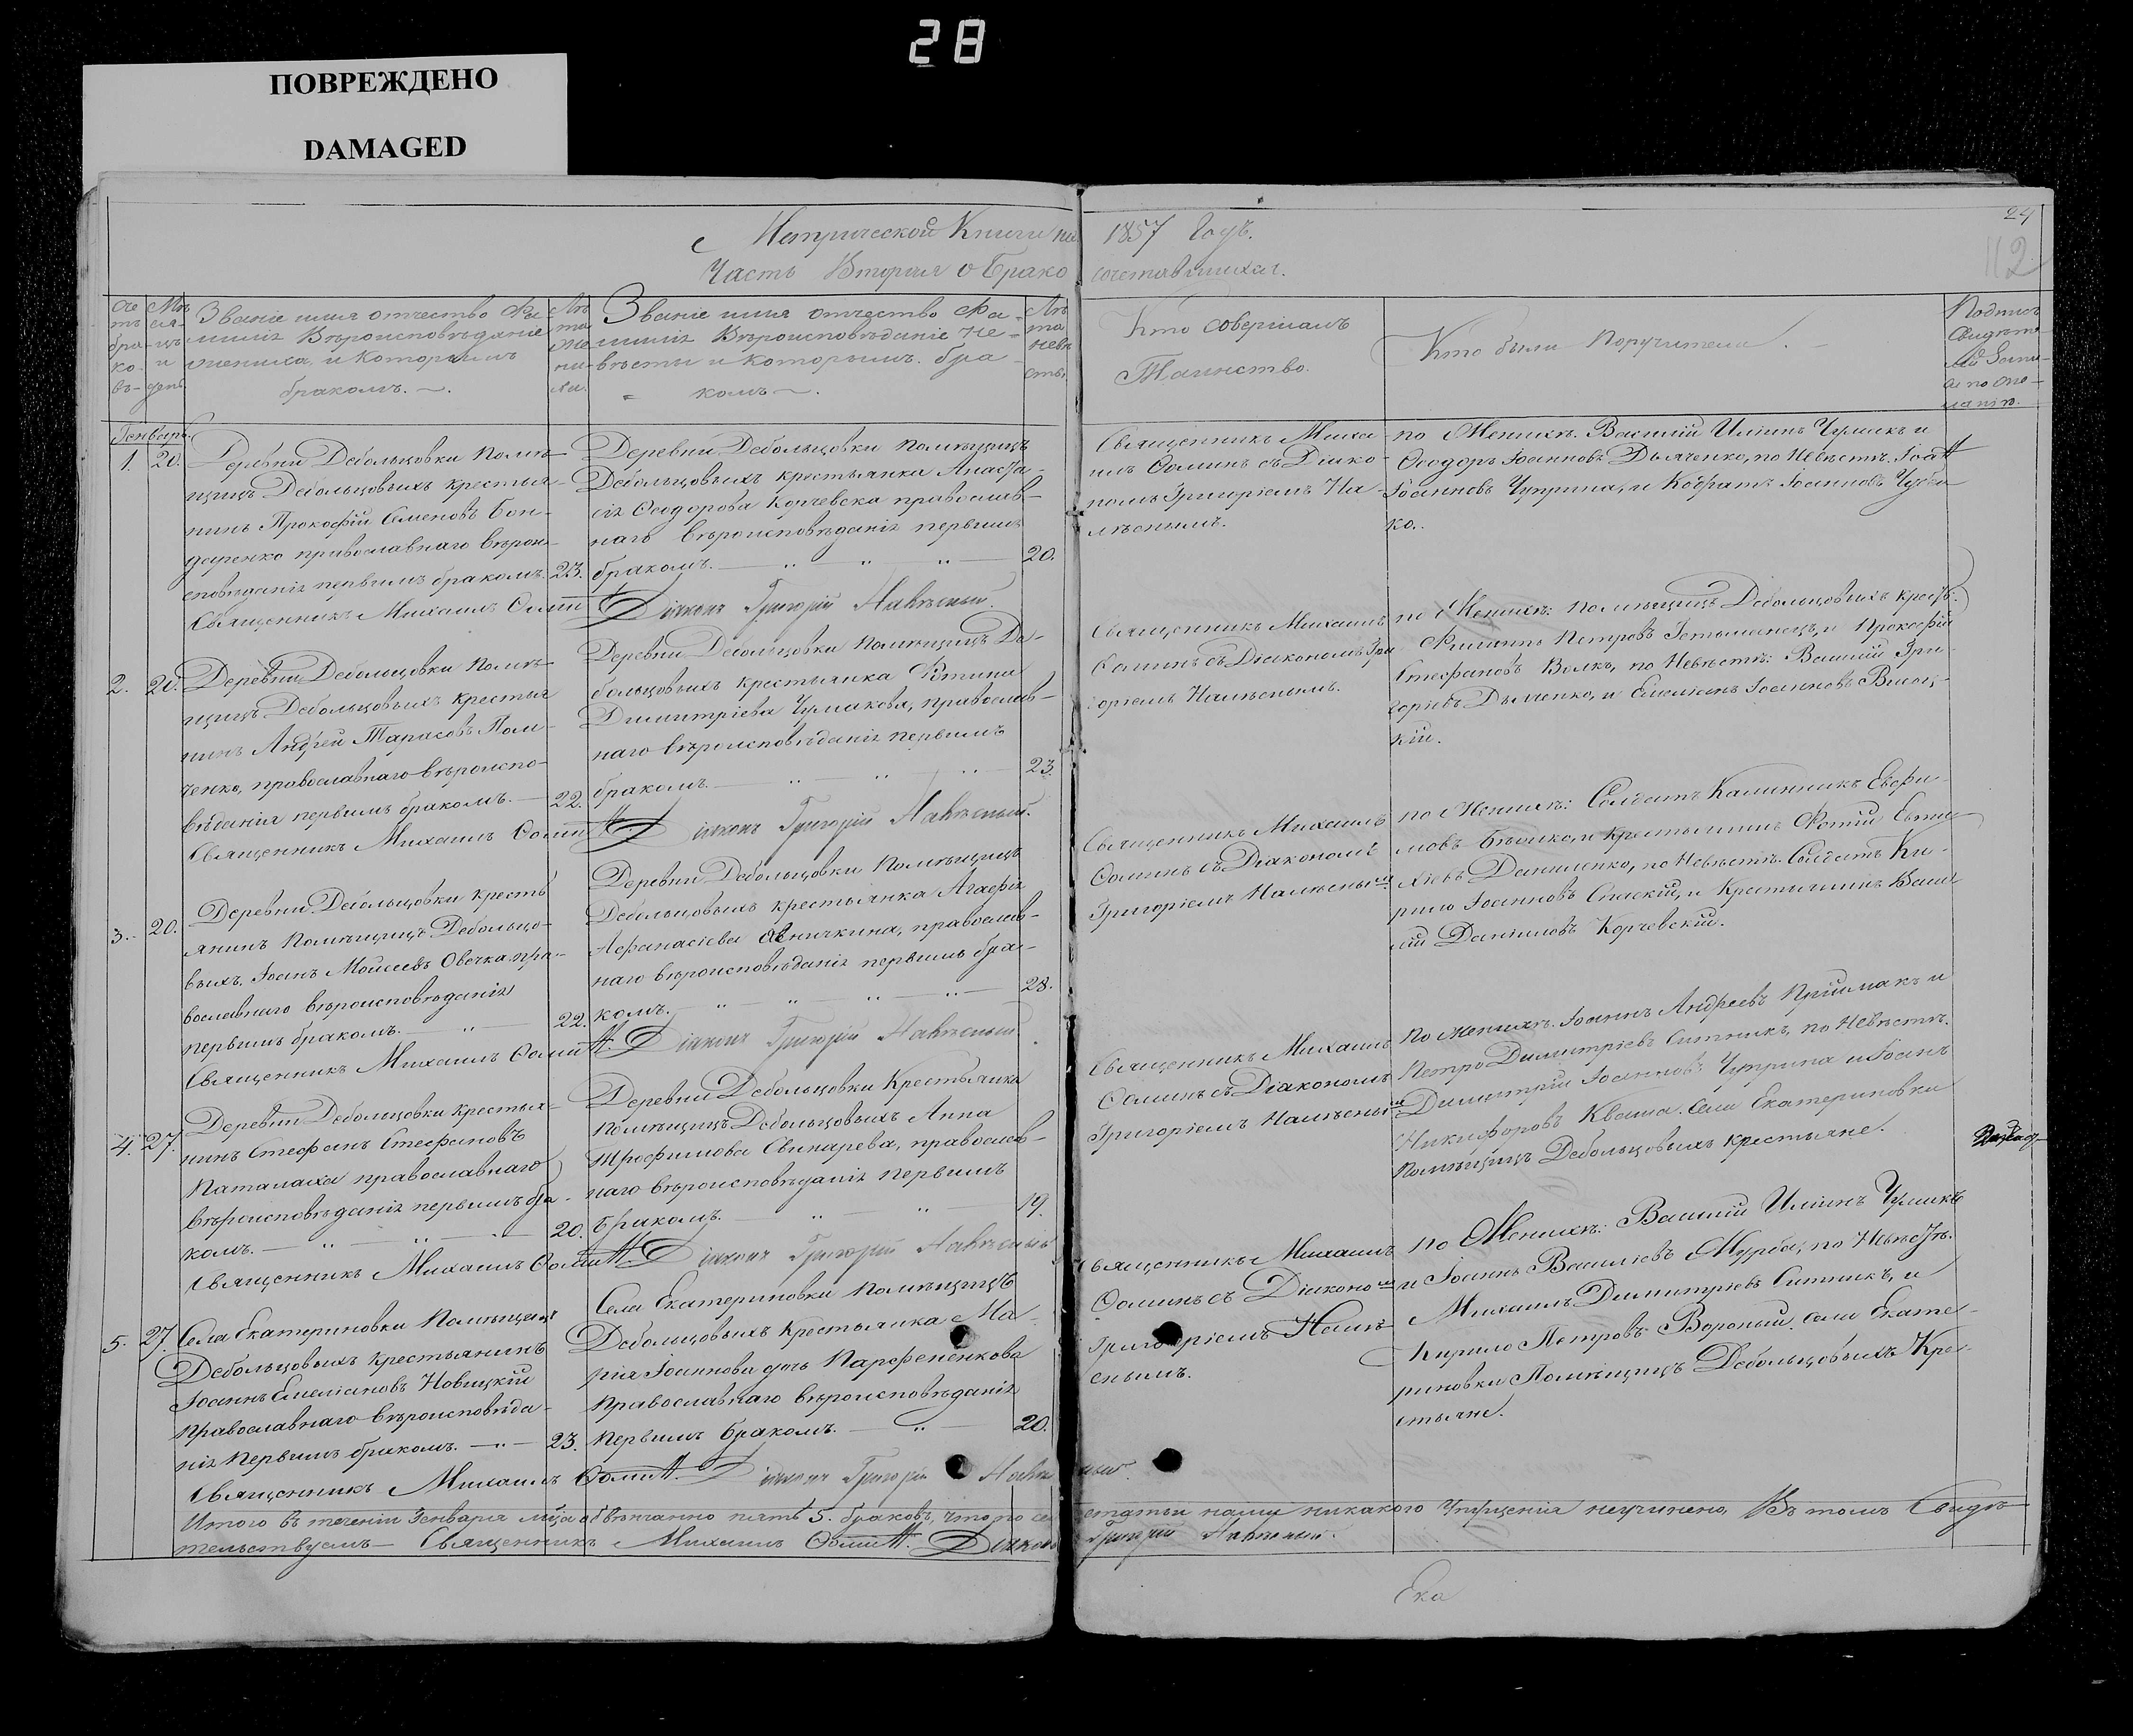 28
ПОВРЕЖДЕНО
DAMAGED
Метрической Книги на 1857 Годъ.
Часть Вторая о Бракосочетавшихся.
24
112
Сче
тъ
бра-
ко-
въ-
Мѣ
ся-
цъ
и
день.
Званіе имя отчество Фа
миліи Вѣроисповѣданіе
жениха, и которымъ
бракомъ.
Лѣ
та
же
ни-
ха.
Званіе имя отчество Фа-
миліи Вѣроисповѣданіе не-
вѣсты и которымъ бра-
комъ
Лѣ
та
невѣ
сты.
Кто совершалъ
Таинство.
Кто были Поручители
Генварь.
1. 20.
Деревни Дебольцовки Помѣ-
щицъ Дебольцовыхъ крестья-
нинъ Прокофій Семеновъ Бон-
даренко православнаго вѣрои-
сповѣданія первымъ бракомъ. 23.
Священникъ Михаилъ Ѳомин
Деревни Дебольцовки помѣщицъ
Дебольцовыхъ крестьянка Анаста-
сія Ѳеодорова Корчевска православ-
наго вѣроисповѣданія первымъ
бракомъ. 20.
Діаконъ Григорій
Священникъ Михаи
илъ Ѳоминъ съ Діако-
номъ Григоріемъ На-
мѣснымъ.
по Женихѣ. Василій Иліинъ Чумакъ и
Ѳеодоръ Іоанновъ Дьяченко, по Невѣстѣ.
Іоанновъ Чуприна, и Кодратъ Іоанновъ
ко.
2. 20.
Деревни Дебольцовки Помѣ-
щицъ Дебольцовыхъ крестья
нинъ Андрей Тарасовъ
ченко, православнаго вѣроиспо-
вѣданія первымъ бракомъ. 22.
Священникъ Михаилъ Ѳомин
Деревни Дебольцовки Помѣщицъ Де-
больцовыхъ крестьянка
Димитріева Чумакова, православ-
наго вѣроисповѣданія первымъ
бракомъ. 23.
Діаконъ Григорій
Священникъ Михаилъ
Ѳоминъ съ Діакономъ Гри
горіемъ Намѣснымъ.
по Женихѣ: помѣщицъ Дебольцовыхъ крест:
Филиппъ Петровъ Гетьманецъ, и Прокофій
Стефановъ Волкъ, по Невѣстѣ: Василій Гри-
горіевъ Дьяченко, и Емеліанъ Іоанновъ Висоц-
кій.
3. 20.
Деревни Дебольцовки кресть
янинъ Помѣщицъ Дебольцо-
выхъ. Іоанъ Моисеевъ Овечка пра-
вославнаго вѣроисповѣданія
первымъ бракомъ. 22.
Священникъ Михаилъ Ѳомин
Деревни Дебольцовки Помѣщицъ
Дебольцовыхъ крестьянка Агафія
Афанасіева православ-
наго вѣроисповѣданія первымъ бра-
комъ. 28.
Діаконъ Григорій
Священникъ Михаилъ
Ѳоминъ съ Діакономъ
Григоріемъ Намѣснымъ
по Женихѣ: Солдатъ Калинникъ Евфи-
мовъ и крестьянинъ Фотій
Даниленко, по Невѣстѣ. Солдатъ Ки-
рило Іоанновъ Спаскій, и Крестьянинъ Васи
лій Даніиловъ Корчевскій.
4. 27.
Деревни Дебольцовки крестья-
нинъ Стефанъ Стефановъ
Паталаха православнаго
вѣроисповѣданія первымъ бра-
комъ. 20.
Священникъ Михаилъ Ѳомин
Деревни Дебольцовки Крестьянка
Помѣщицъ Дебольцовыхъ Анна
Трофимова Свинарева, православ-
наго вѣроисповѣданія первымъ
бракомъ. 19.
Діаконъ Григорій
Священникъ Михаилъ
Ѳоминъ съ Діакономъ
Григоріемъ Намѣснымъ
По женихѣ. Іоаннъ Андреевъ Приймакъ и
Петро Димитріевъ Ситникъ, по Невѣстѣ.
Димитрій Іоанновъ Чуприна и Іоанъ
Никифоровъ Кваша. Села Екатериновки
помѣщицъ Дебольцовыхъ крестьяне.
5. 27.
Села Екатериновки Помѣщицъ
Дебольцовыхъ крестьянинъ
Іоаннъ Емеліановъ Новицкій
Православнаго вѣроисповѣда-
нія первымъ бракомъ. 23.
Священникъ Михаилъ Ѳомин
Села Екатериновки Помѣщицъ
Дебольцовыхъ крестьянка Ма-
рія Іоаннова дочь Парфененкова
Православнаго вѣроисповѣданія
первымъ бракомъ. 20.
Діаконъ Григорій
Священникъ Михаилъ
Ѳоминъ съ Діакономъ
Григоріемъ Намѣ
снымъ.
по Женихѣ: Василій Иліинъ Чумакъ
и Іоаннъ Василіевъ Мурба, по Невѣстѣ.
Михаилъ Димитріевъ Ситникъ, и
Кирило Петровъ Вороный. Села Екате-
риновки Помѣщицъ Дебольцовыхъ Кре-
стьяне.
Итого въ теченіи Генваря мѣсяца обвѣнчанно пять 5. браковъ, что по сей статьи нами никакого упущенія неучинено, Въ томъ Свидѣ-
тельствуемъ Священникъ Михаилъ Ѳомин Діаконъ Григорій
Ека